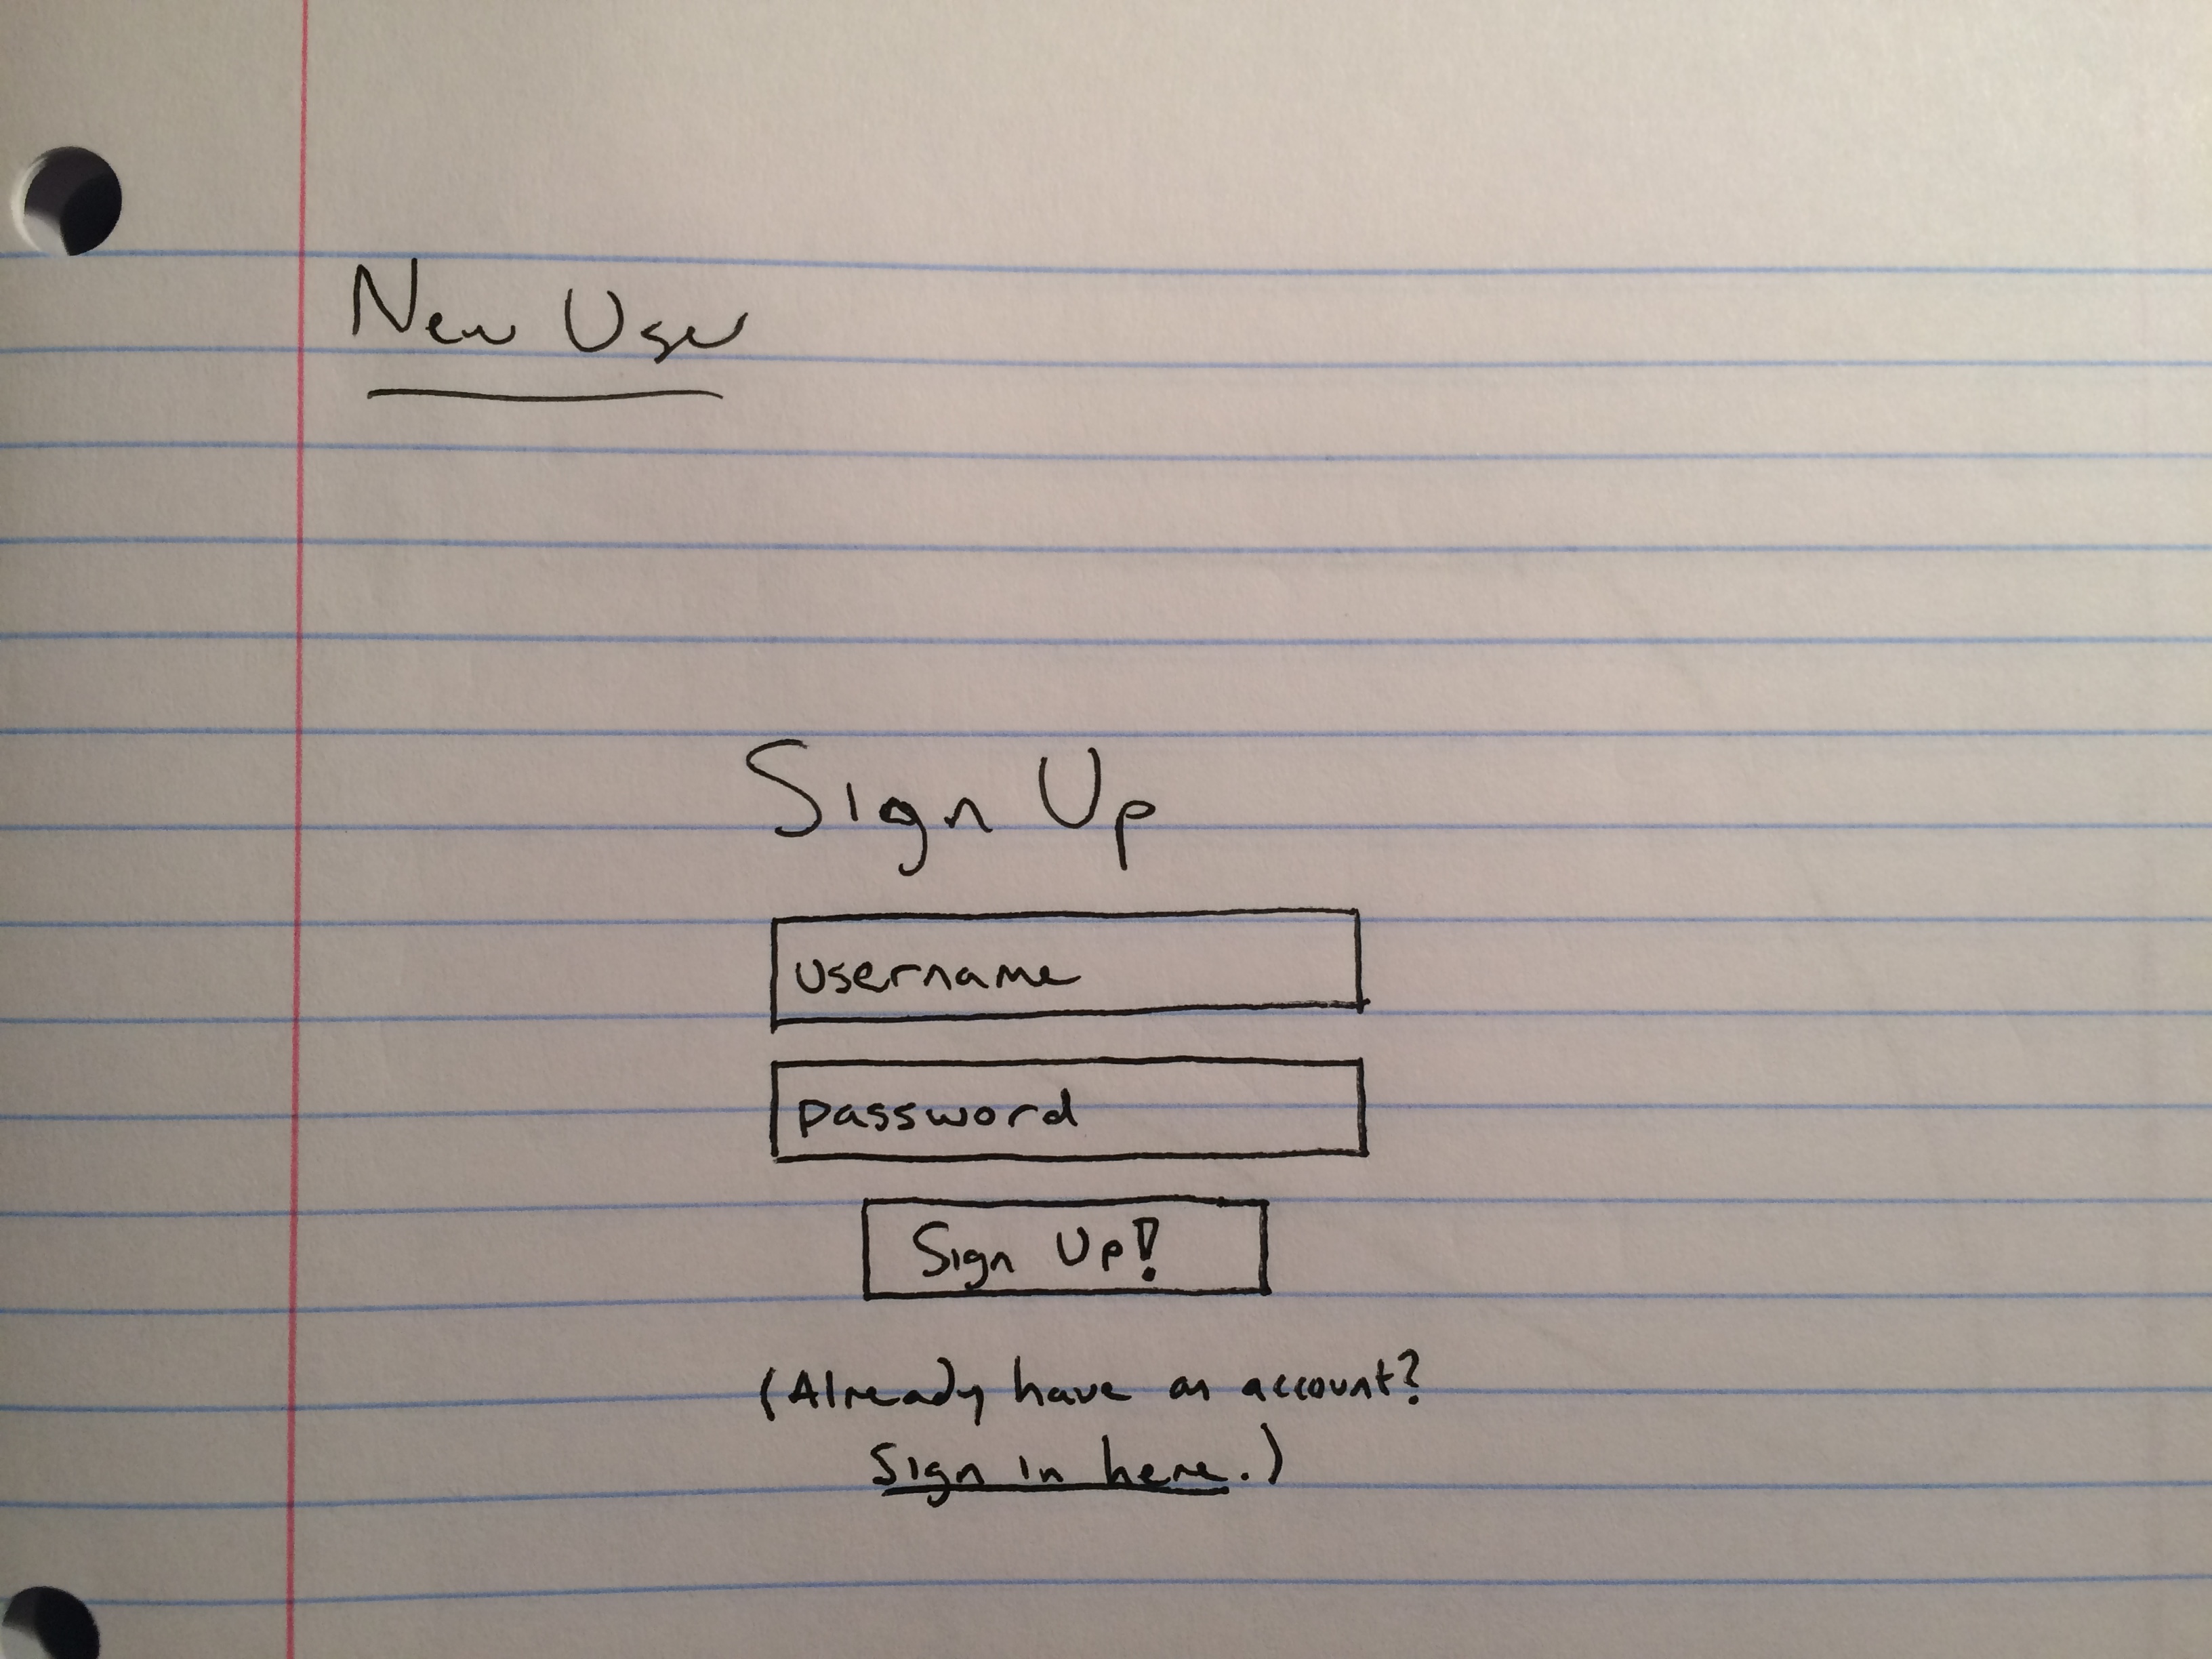 New User
Sign Up
username
password
Sign Up!
(Already have an account?
Sign in here.)